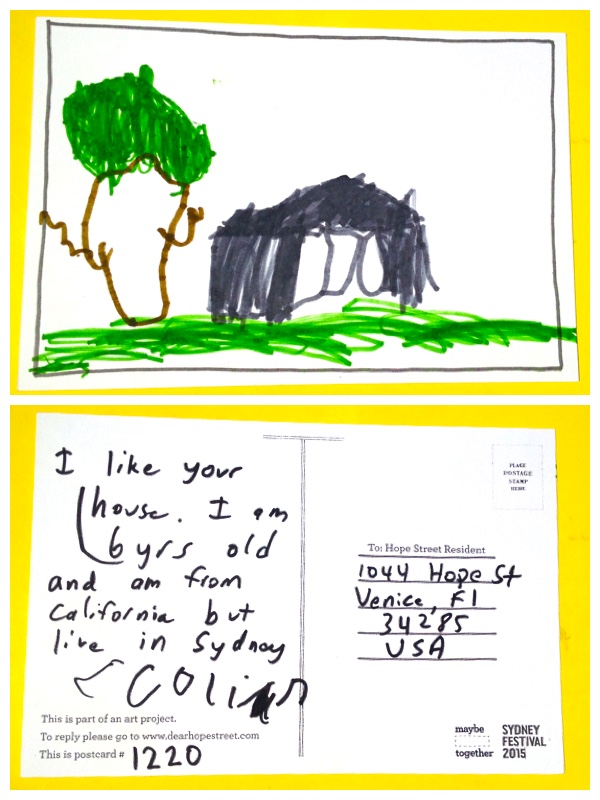 I like your
house. I am
6 yrs old
and am from
California but
live in Sydney
This is part of an art project.
To reply please go to www.dearhopestreet.com
This is postcard # 1220
PLACE
POSTAGE
STAMP
HERE
To: Hope Street Resident
1044 Hope St
Venice, Fl
34285
USA
maybe
together
SYDNEY
FESTIVAL
2015